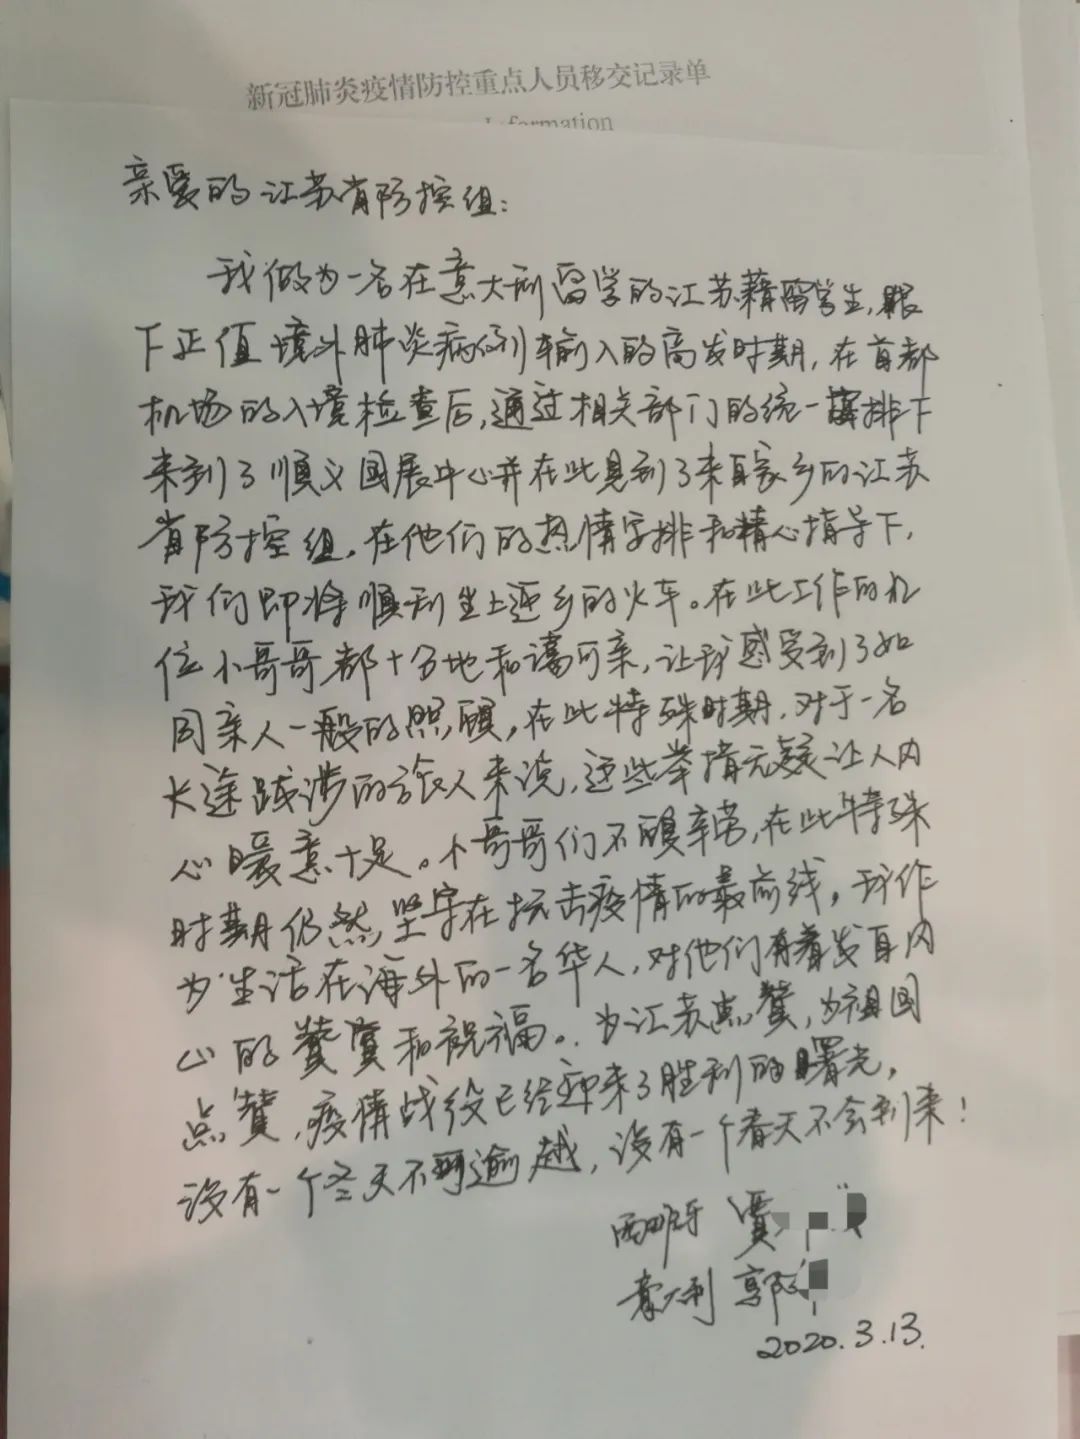 新冠肺炎疫情防控重点人员移交记录单
Information
亲爱的江苏省防控组:
我做为一名在意大利留学的江苏籍留学生,眼
下正值境外肺炎病例输入的高发时期,在首都
机场的入境检查后,通过相关部门的统一安排下
来到了顺义国展中心并在此见到了来自家乡的江苏
省防控组。在他们的热情安排和精心指导下,
我们即将顺利坐上返乡的火车。在此工作的几
位小哥哥都十分地和蔼可亲,让我感受到了如
同亲人一般的照顾,在此特殊时期,对于一名
长途跋涉的旅人来说,这些举措无疑让人内
心暖意十足。小哥哥们不顾辛劳,在此特殊
时期仍然坚守在抗击疫情的最前线,我作
为生活在海外的一名华人,对他们有着发自内
心的赞赏和祝福。为江苏点赞,为祖国
点赞,疫情战役已经迎来了胜利的曙光,
没有一个冬天不可逾越,没有一个春天不会到来!
西班牙 贾
意大利 郭
2020.3.13.